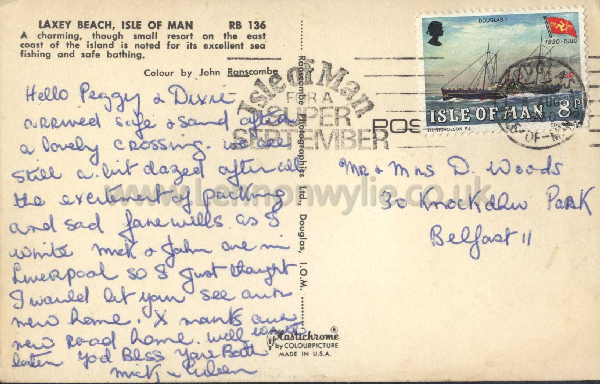 LAXEY BEACH, ISLE OF MAN RB 136
A charming, though small resort on the east
coast of the island is noted for its excellent sea
fishing and safe bathing.
Colour by John Ranscombe
Hello Peggy & Dixie
arrived safe & sound after
a lovely crossing. we are
still a bit dazed after all
the excitement of packing
and sad farewills as I
write Mick & John are in
Liverpool so I just thought
I would let your see our
new home. X marks our
new Road home. will write
later God Bless Youre Both
Mick & Eileen
Ranscombe Photographics Ltd., Douglas, I.O.M.
Plastichrome
by COLOURPICTURE
MADE IN U.S.A.
Isle of Man
FOR A
SUPER
SEPTEMBER
POS
DOUGLAS I
1830-1980
ISLE OF MAN 8P
J.H.NICHOLSON R.I.
Mr & Mrs D. Woods
30 Knockdhu Park
Belfast 11
www.Lennonwylie.co.uk